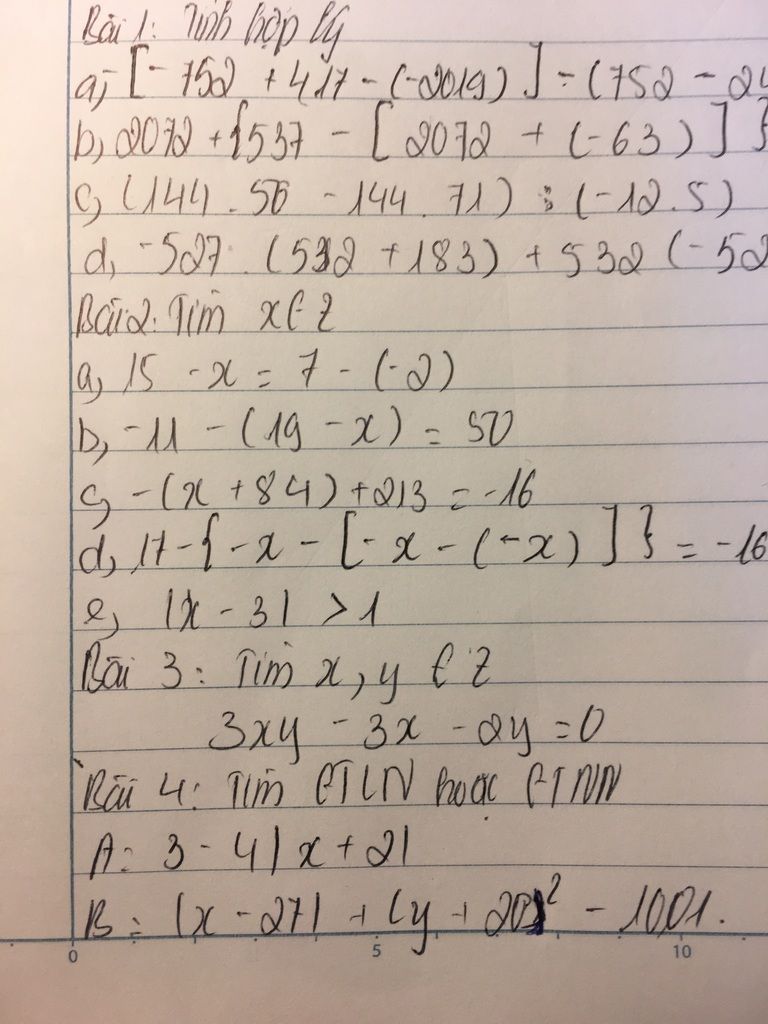 Bài 1: Tính hợp lý
a, [-752 + 417 - (-2019)] - (752 - 2
b, 2072 + {537 - [2072 + (-63)]}
c, (144 . 56 - 144 . 71) : (-12.5)
d, -527 . (532 + 183) + 532 (-52
Bài 2: Tìm x ∈ Z
a, 15 - x = 7 - (-2)
b, -11 - (19 - x) = 50
c, -(x + 84) + 213 = -16
d, 17 - {-x - [-x - (-x)]} = -16
e, |x - 3| > 1
Bài 3: Tìm x, y ∈ Z
3xy - 3x - 2y = 0
Bài 4: Tìm GTLN hoặc GTNN
A: 3 - 4|x + 2|
B = |x - 27| + (y + 20)² - 1001.
0 5 10